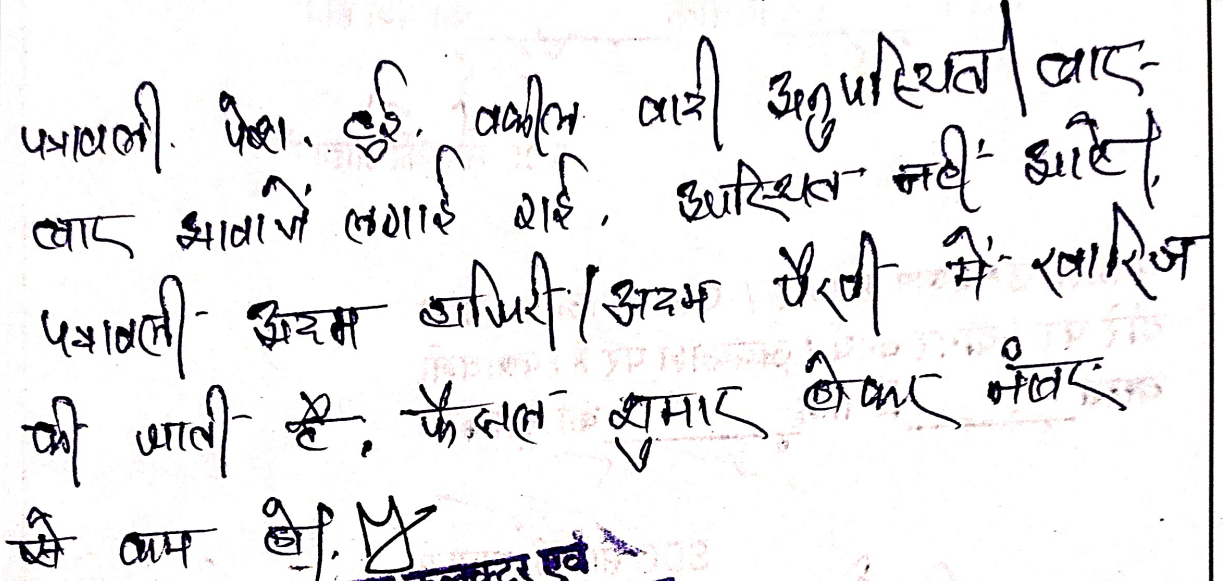 पत्रावली पेश हुई. वकील वादी अनुपस्थित। बार-
बार आवाजें लगाई गई. उपस्थित नहीं आये।
पत्रावली अदम हाजिरी/अदम पैरवी में खारिज
की जाती है. फैसल शुमार होकर नंबर
से कम हो।
एवं